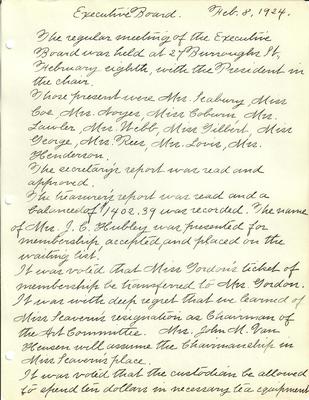 Executive Board. Feb. 8, 1924.
The regular meeting of the Executive
Board was held at 27 Burroughs St,
February eighth, with the President in
the chair.
Those present were Mrs. Seabury, Miss
Coe Mrs. Noyes, Miss Coburn, Mrs.
Lawler, Mrs. Webb, Miss Gilbert, Miss
George, Mrs. Rees, Mrs. Lovis, Mrs.
Henderson.
The secretary's report was read and
approved.
The treasurer's report was read and a
balance of $1402.39 was recorded. The name
of Mrs. J. C. Hubley was presented for
membership, accepted and placed on the
waiting list.
It was voted that Miss Gordon's ticket of
membership be transferred to Mrs. Gordon.
It was with deep regret that we learned of
Miss Seaverns resignation as Chairman of
the Art Committee. Mrs. John M. Van
Heusen will assume the Chairmanship in
Miss Seavern's place.
It was voted that the custodian be allowed
to spend ten dollars in necessary tea equipment